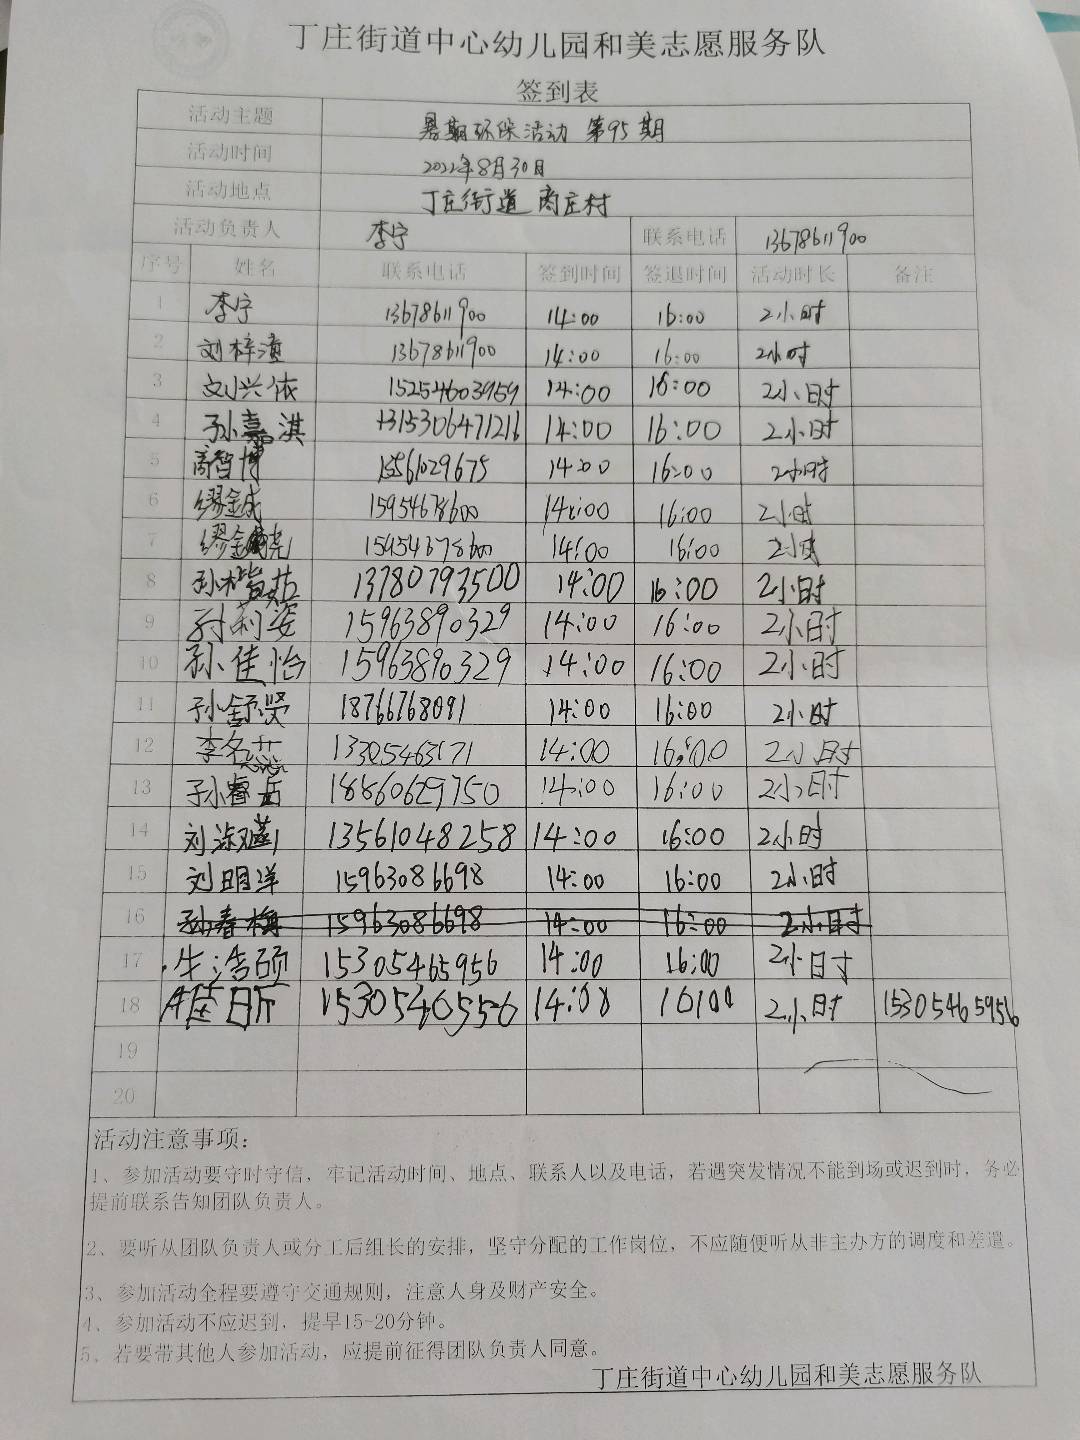 丁庄街道中心幼儿园和美志愿服务队
签到表
活动主题 暑期环保活动 第95期
活动时间 2022年8月30日
活动地点 丁庄街道 商庄村
活动负责人 李宁 联系电话 13678611900
序号 姓名 联系电话 签到时间 签退时间 活动时长 备注
1 李宁 13678611900 14:00 16:00 2小时
2 刘梓潼 13678611900 14:00 16:00 2小时
3 刘兴依 15254603959 14:00 16:00 2小时
4 孙嘉淇 15306471216 14:00 16:00 2小时
5 商智博 15561029675 14:00 16:00 2小时
6 缪金成 15954678600 14:00 16:00 2小时
7 缪金 15954678600 14:00 16:00 2小时
8 孙 13780793500 14:00 16:00 2小时
9 孙莉姿 15963890329 14:00 16:00 2小时
10 孙佳怡 15963890329 14:00 16:00 2小时
11 孙舒贤 18766768091 14:00 16:00 2小时
12 李名蕊 13305463171 14:00 16:00 2小时
13 孙睿岳 18860629750 14:00 16:00 2小时
14 刘淑 13561048258 14:00 16:00 2小时
15 刘明洋 15963086698 14:00 16:00 2小时
16 孙春梅 15963086698 14:00 16:00 2小时
17 牛浩硕 15305465956 14:00 16:00 2小时
18 昕 14:00 2小时 15305465956
19
20
活动注意事项：
1、参加活动要守时守信，牢记活动时间、地点、联系人以及电话，若遇突发情况不能到场或迟到时，务必
提前联系告知团队负责人。
2、要听从团队负责人或分工后组长的安排，坚守分配的工作岗位，不应随便听从非主办方的调度和差遣。
3、参加活动全程要遵守交通规则，注意人身及财产安全。
4、参加活动不应迟到，提早15-20分钟。
5、若要带其他人参加活动，应提前征得团队负责人同意。
丁庄街道中心幼儿园和美志愿服务队